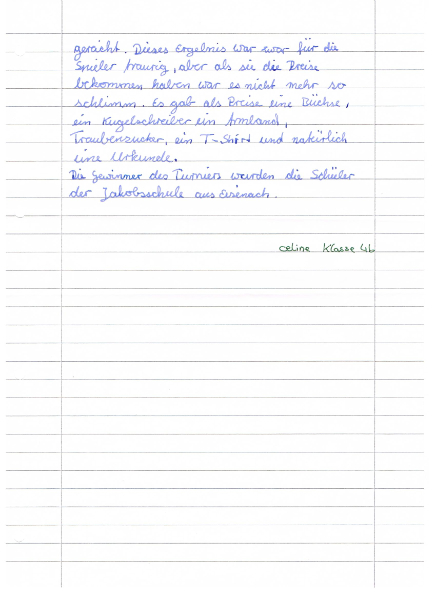 gereicht. Dieses Ergebnis war zwar für die
Spieler traurig, aber als sie die Preise
bekommen haben war es nicht mehr so
schlimm. Es gab als Preise eine Büchse,
ein Kugelschreiber ein Armband,
Traubenzucker, ein T-Shirt und natürlich
eine Urkunde.
Die Gewinner des Turniers wurden die Schüler
der Jakobsschule aus Eisenach.
Celine Klasse 4b